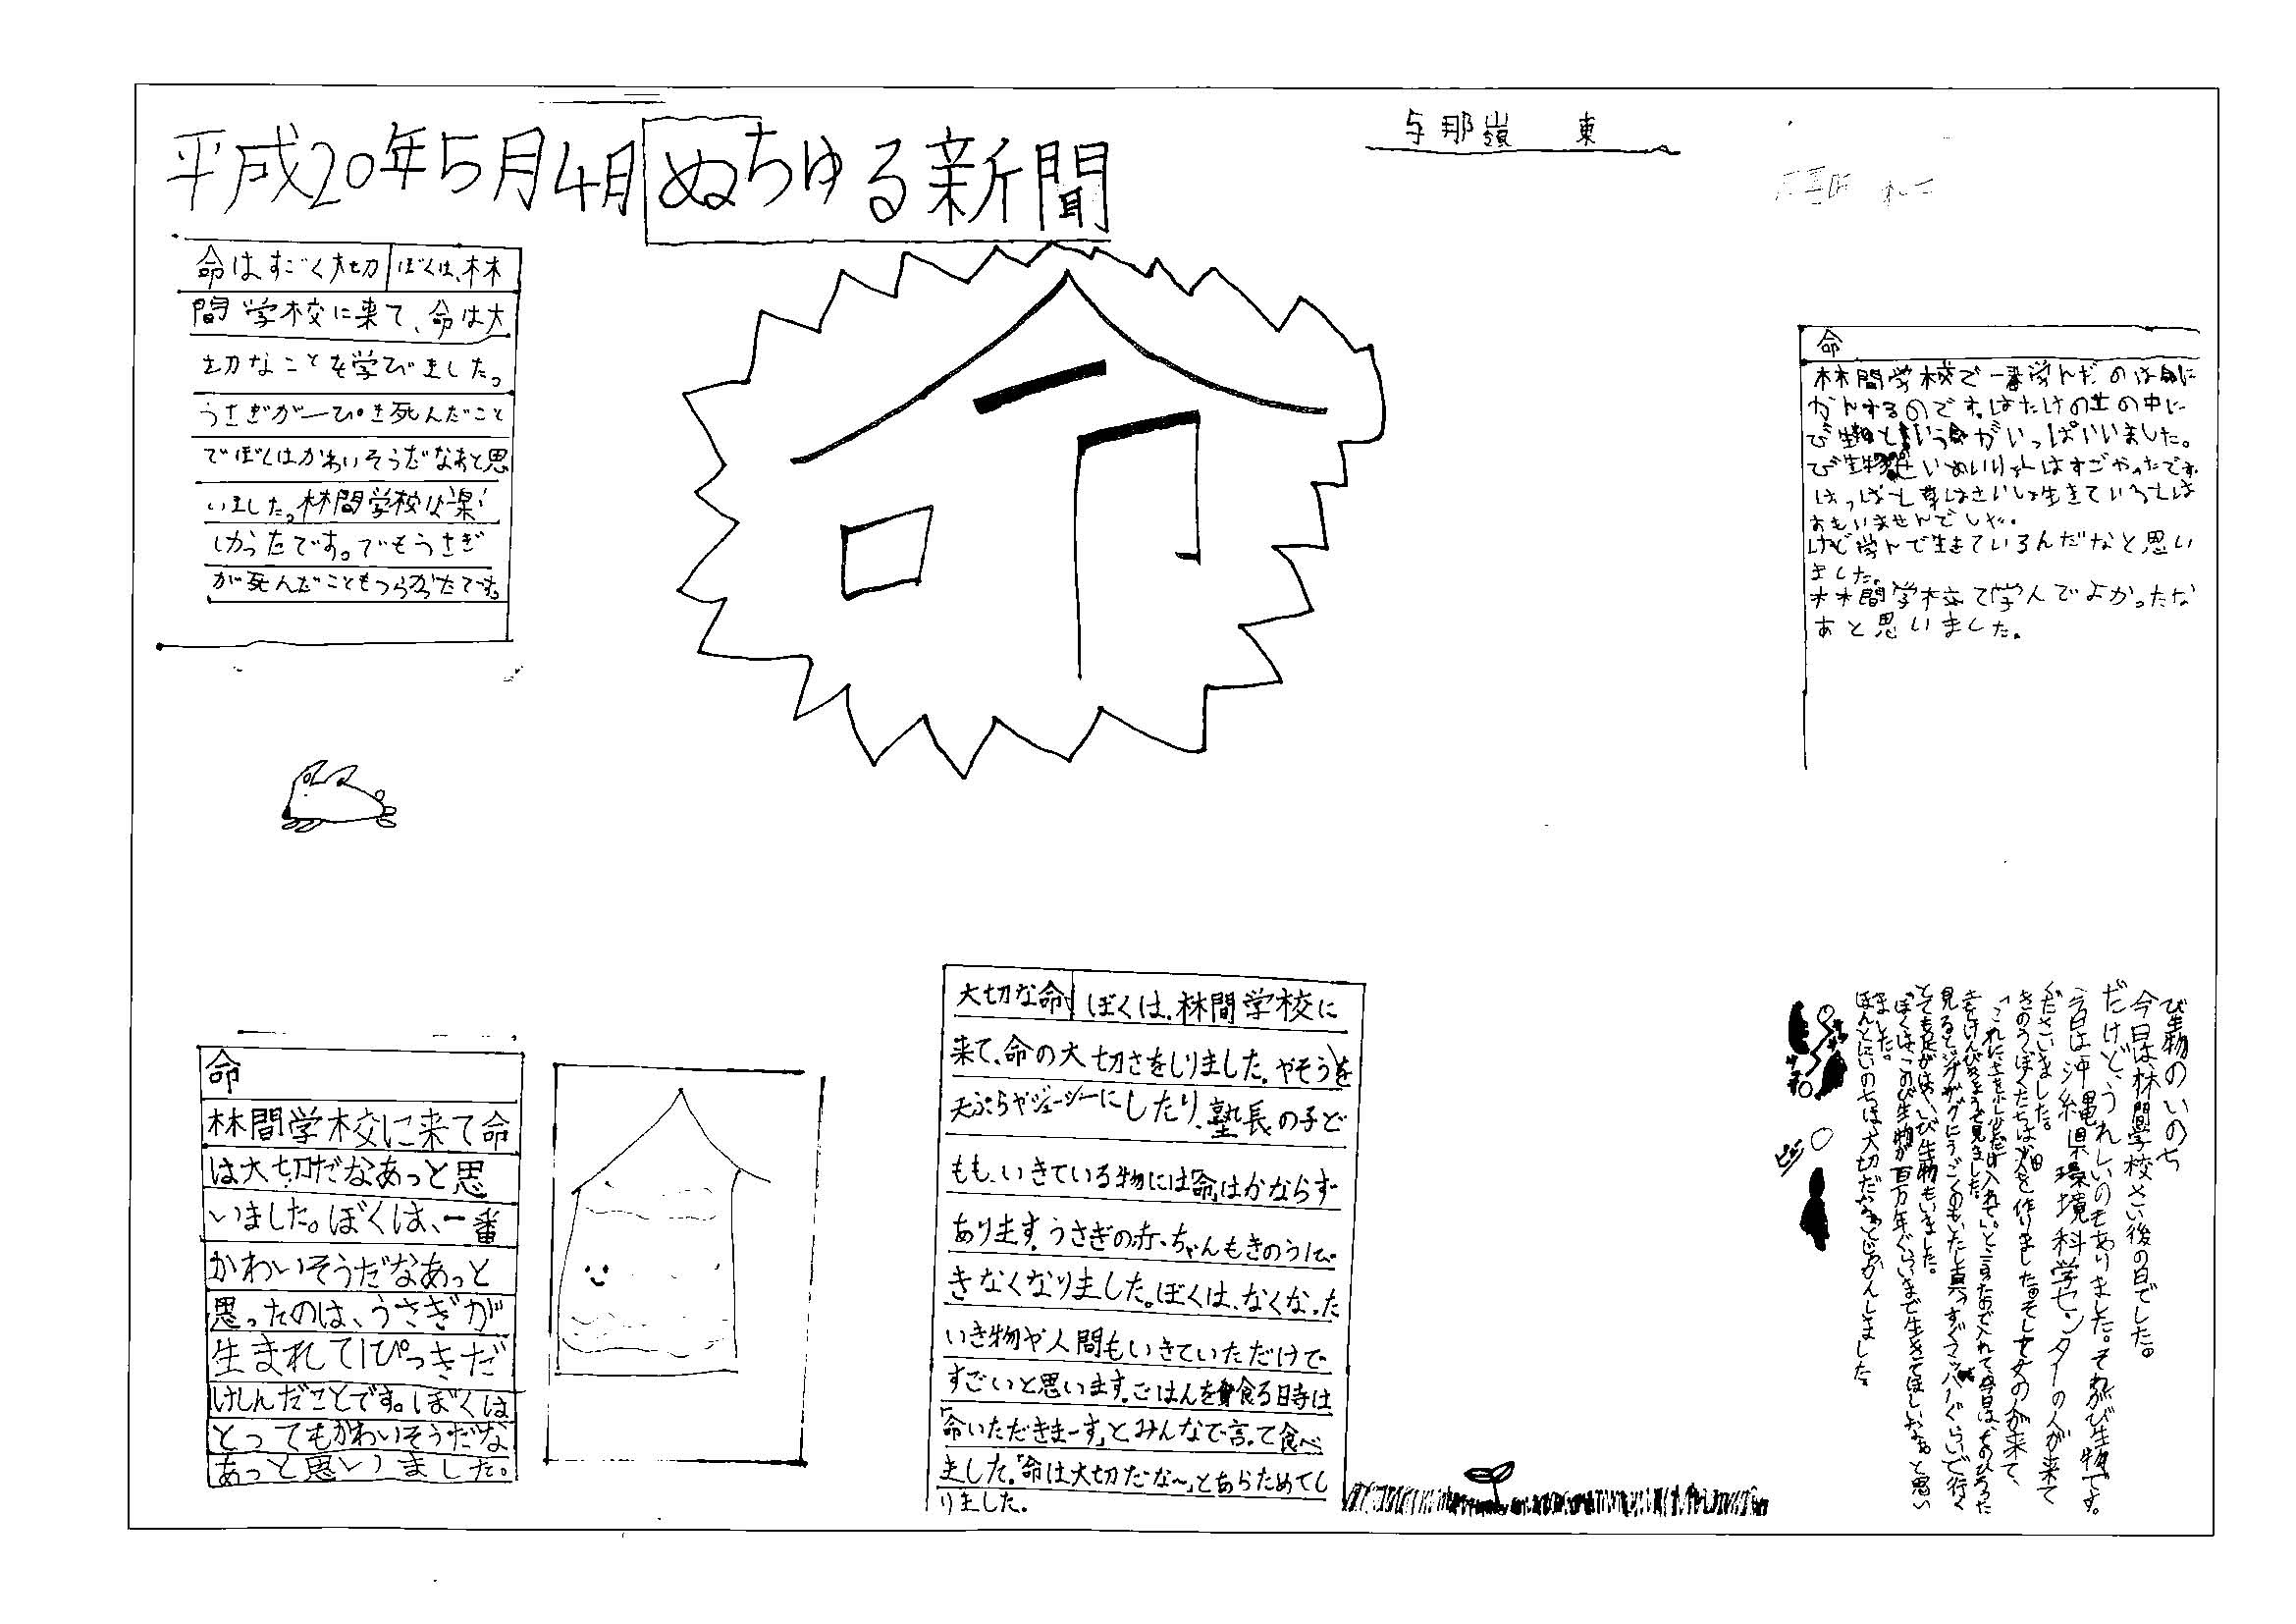 平成20年5月4月
ぬちゆる新聞
与那嶺 東
命はすごく大切 ぼくは、林
間学校に来て、命は大
切なことを学びました。
うさぎが一ぴき死んだこと
でぼくはかわいそうだなあと思
いました。林間学校は楽し
かったです。でもうさぎ
が死んだこともつらかったです。
命
命
林間学校で一番学んだのは命に
かんするのです。はたけの土の中に
び生物という命がいっぱいいました。
び生物
はすごかったです。
はっぱと草はさいしょ生きているとは
おもいませんでした。
けど学んで生きているんだなと思い
ました。
林間学校で学んでよかったな
あと思いました。
命
林間学校に来て命
は大切だなあっと思
いました。ぼくは、一番
かわいそうだなあっと
思ったのは、うさぎが
生まれて1ぴっきだ
けしんだことです。ぼくは
とってもかわいそうだな
あっと思いました。
大切な命 ぼくは、林間学校に
来て、命の大切さをしりました。やそうを
天ぷらやジューシーにしたり、塾長の子ど
もも、いきている物には「命」はかならず
あります。うさぎの赤ちゃんもきのうに。
きなくなりました。ぼくは、なくなった
いき物や人間もいきていただけで
すごいと思います。ごはんを食る時は
「命いただきまーす」とみんなで言って食べ
ました。「命は大切だな〜」とあらためてし
りました。
び生物のいのち
今日は、林間学校さい後の日でした。
だけど、うれしいのもありました。それがび生物です。
今日は沖縄県環境科学センターの人が来て
くださいました。
きのうぼくたちは
を作りました。そして女の人が来て、
「これに土を少しだけ入れて。」と言ったので入れて今日は、そのひろった
きをけんびきょうで見ました。
見るとジグザグにうごくのもいたし真っすぐマッハ
ぐらいで行く
とても足がはやいび生物もいました。
ぼくは、このび生物が百万年ぐらいまで生きてほしいなあと思い
ました。
ほんとにいのちは大切だなあとじっかんしました。